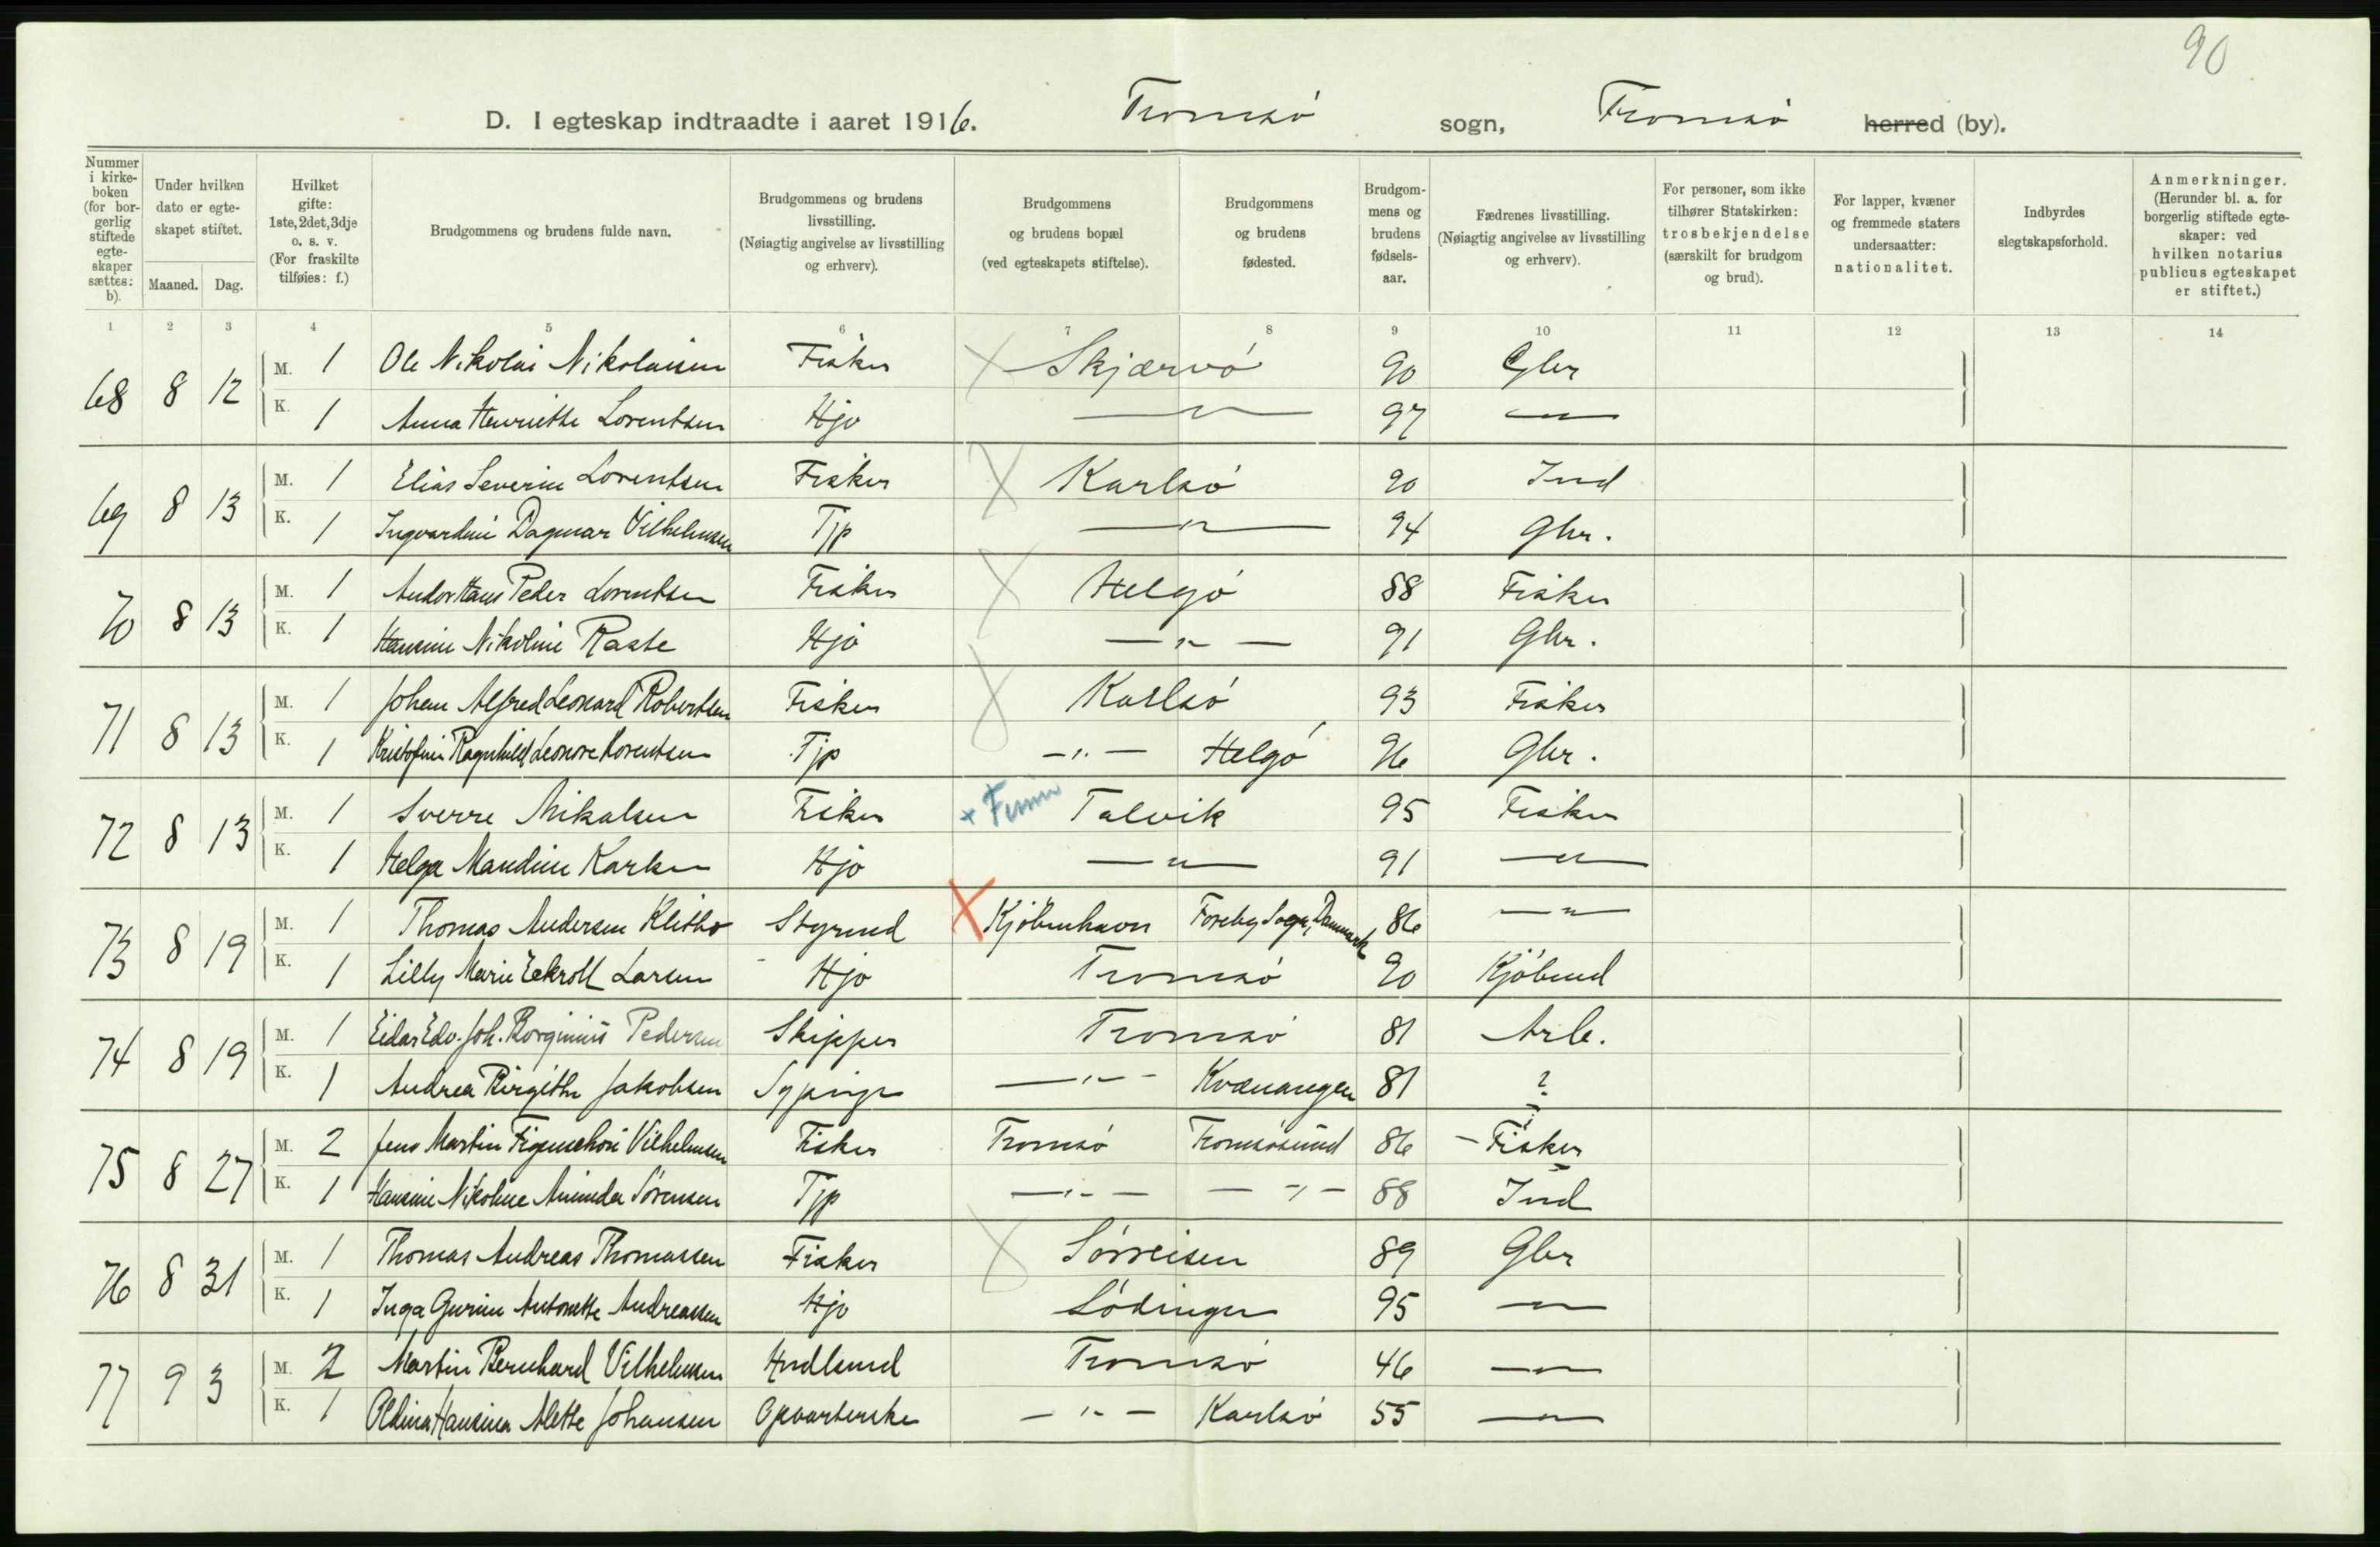 90
D. I egteskap indtraadte i aaret 1916. Tromsø sogn, Tromsø herred (by).
Nummer i kirkeboken (for borgerlig stiftede egteskaper sættes: b).
Under hvilken dato er egteskapet stiftet.
Maaned. Dag.
Hvilket gifte: 1ste, 2det, 3dje o. s. v. (For fraskilte tilføies: f.)
Brudgommens og brudens fulde navn.
Brudgommens og brudens livsstilling. (Nøiagtig angivelse av livsstilling og erhverv).
Brudgommens og brudens bopæl (ved egteskapets stiftelse).
Brudgommens og brudens fødested.
Brudgommens og brudens fødselsaar.
Fædrenes livsstilling. (Nøiagtig angivelse av livsstilling og erhverv).
For personer, som ikke tilhører Statskirken: trosbekjendelse (særskilt for brudgom og brud).
For lapper, kvæner og fremmede staters undersaatter: nationalitet.
Indbyrdes slegtskapsforhold.
Anmerkninger. (Herunder bl. a. for borgerlig stiftede egteskaper: ved hvilken notarius publicus egteskapet er stiftet.)
1 2 3 4 5 6 7 8 9 10 11 12 13 14
68 8 12 M. 1 Ole Nikolai Nikolaisen Fisker X Skjærvø 90 Gbr
K. 1 Anna Henriette Lorentsen Hjo —"— 97 —"—
69 8 13 M. 1 Elias Severin Lorentsen Fisker X Karlsø 90 Ind
K. 1 Ingvardine Dagmar Vilhelmsen Tjp —"— 94 Gbr.
70 8 13 M. 1 Andor Hans Peder Lorentsen Fisker X Helgø 88 Fisker
K. 1 Hansine Nikoline Raste Hjo —"— 91 Gbr.
71 8 13 M. 1 Johan Alfred Leonard Robertsen Fisker X Karlsø 93 Fisker
K. 1 Kristofine Ragnhild Leonore Lorentsen Tjp —"— Helgø 96 Gbr.
72 8 13 M. 1 Sverre Mikalsen Fisker + Finm Talvik 95 Fisker
K. 1 Helga Mandine Karlsen Hjo —"— 91 —"—
73 8 19 M. 1 Thomas Andersen Klitbo Styrmd X Kjöbenhavn Foreby Sogn, Danmark 86 —"—
K. 1 Lilly Marie Eekroll Larsen Hjo Tromsø 90 Kjöbmd
74 8 19 M. 1 Eidar Edv. Joh. Borginius Pedersen Skipper Tromsø 81 Arb.
K. 1 Andrea Birgithe Jakobsen Sypige —"— Kvænangen 81 ?
75 8 27 M. 2 Jens Martin Vilhelmsen Fisker Tromsø Tromsøsund 86 – Fisker
K. 1 Hansine Nikoline Aminda Sørensen Tjp —"— —"— 88 Ind
76 8 31 M. 1 Thomas Andreas Thomassen Fisker X Sørreisen 89 Gbr
K. 1 Inga Gurine Antonette Andreassen Hjo Lödingen 95 —"—
77 9 3 M. 2 Martin Bernhard Vilhelmsen Hndlsmd Tromsø 46 —"—
K. 1 Oldina Hansina Alette Johansen Opvarterske —"— Karlsø 55 —"—